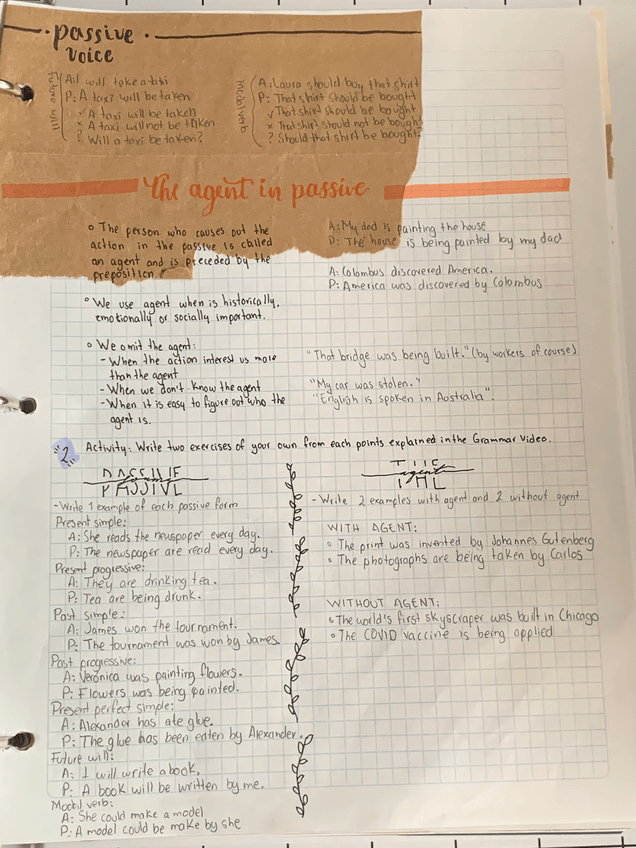 passive
voice
Future will
A: I will take a taxi
P: A taxi will be taken
✓ A taxi will be taken
x A taxi will not be taken
? Will a taxi be taken?
Modal verb
A: Laura should buy that shirt
P: That shirt should be bought
✓ That shirt should be bought
x That shirt should not be bought
? Should that shirt be bought?
The agent in passive
The person who causes out the
action in the passive is called
an agent and is preceded by the
preposition
A: My dad is painting the house
P: The house is being painted by my dad
A: Colombus discovered America.
P: America was discovered by Colombus
We use agent when is historically,
emotionally or socially important.
We omit the agent:
- When the action interest us more
than the agent
- When we don't know the agent
- When it is easy to figure out who the
agent is.
"That bridge was being built." (by workers of course)
"My car was stolen."
"English is spoken in Australia".
2 Activity: Write two exercises of your own from each points explained in the Grammar Video.
PASSIVE
- Write 1 example of each passive form
Present simple:
A: She reads the newspoper every day.
P: The newspaper are read every day.
Present progressive:
A: They are drinking tea.
P: Tea are being drunk.
Past simple:
A: James won the tournament.
P: The tournament was won by James.
Past progressive:
A: Veronica was painting flowers.
P: Flowers was being painted.
Present perfect simple:
A: Alexander has ate glue.
P: The glue has been eaten by Alexander.
Future will:
A: I will write a book.
P: A book will be written by me.
Modal verb:
A: She could make a model
P: A model could be make by she
THE
agent
- Write 2 examples with agent and 2 without agent
WITH AGENT:
The print was invented by Johannes Gutenberg
The photographs are being taken by Carlos
WITHOUT AGENT:
The world's first skyscraper was built in Chicago
The COVID vaccine is being applied